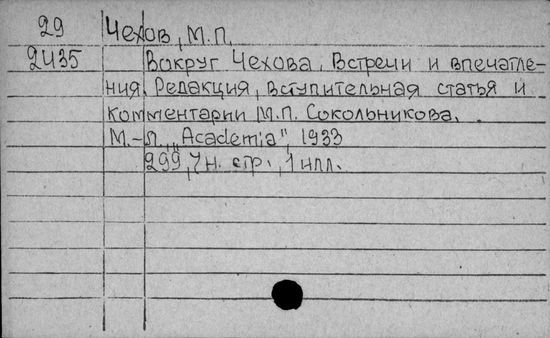 29 Чехов, М.П.
2435 Вокруг Чехова. Встречи и впечатле-
ния. Редакция, вступительная статья и
комментарии М.П. Сокольникова.
М.-Л., „Academia", 1933
299, [ч]н. стр., 1 илл.